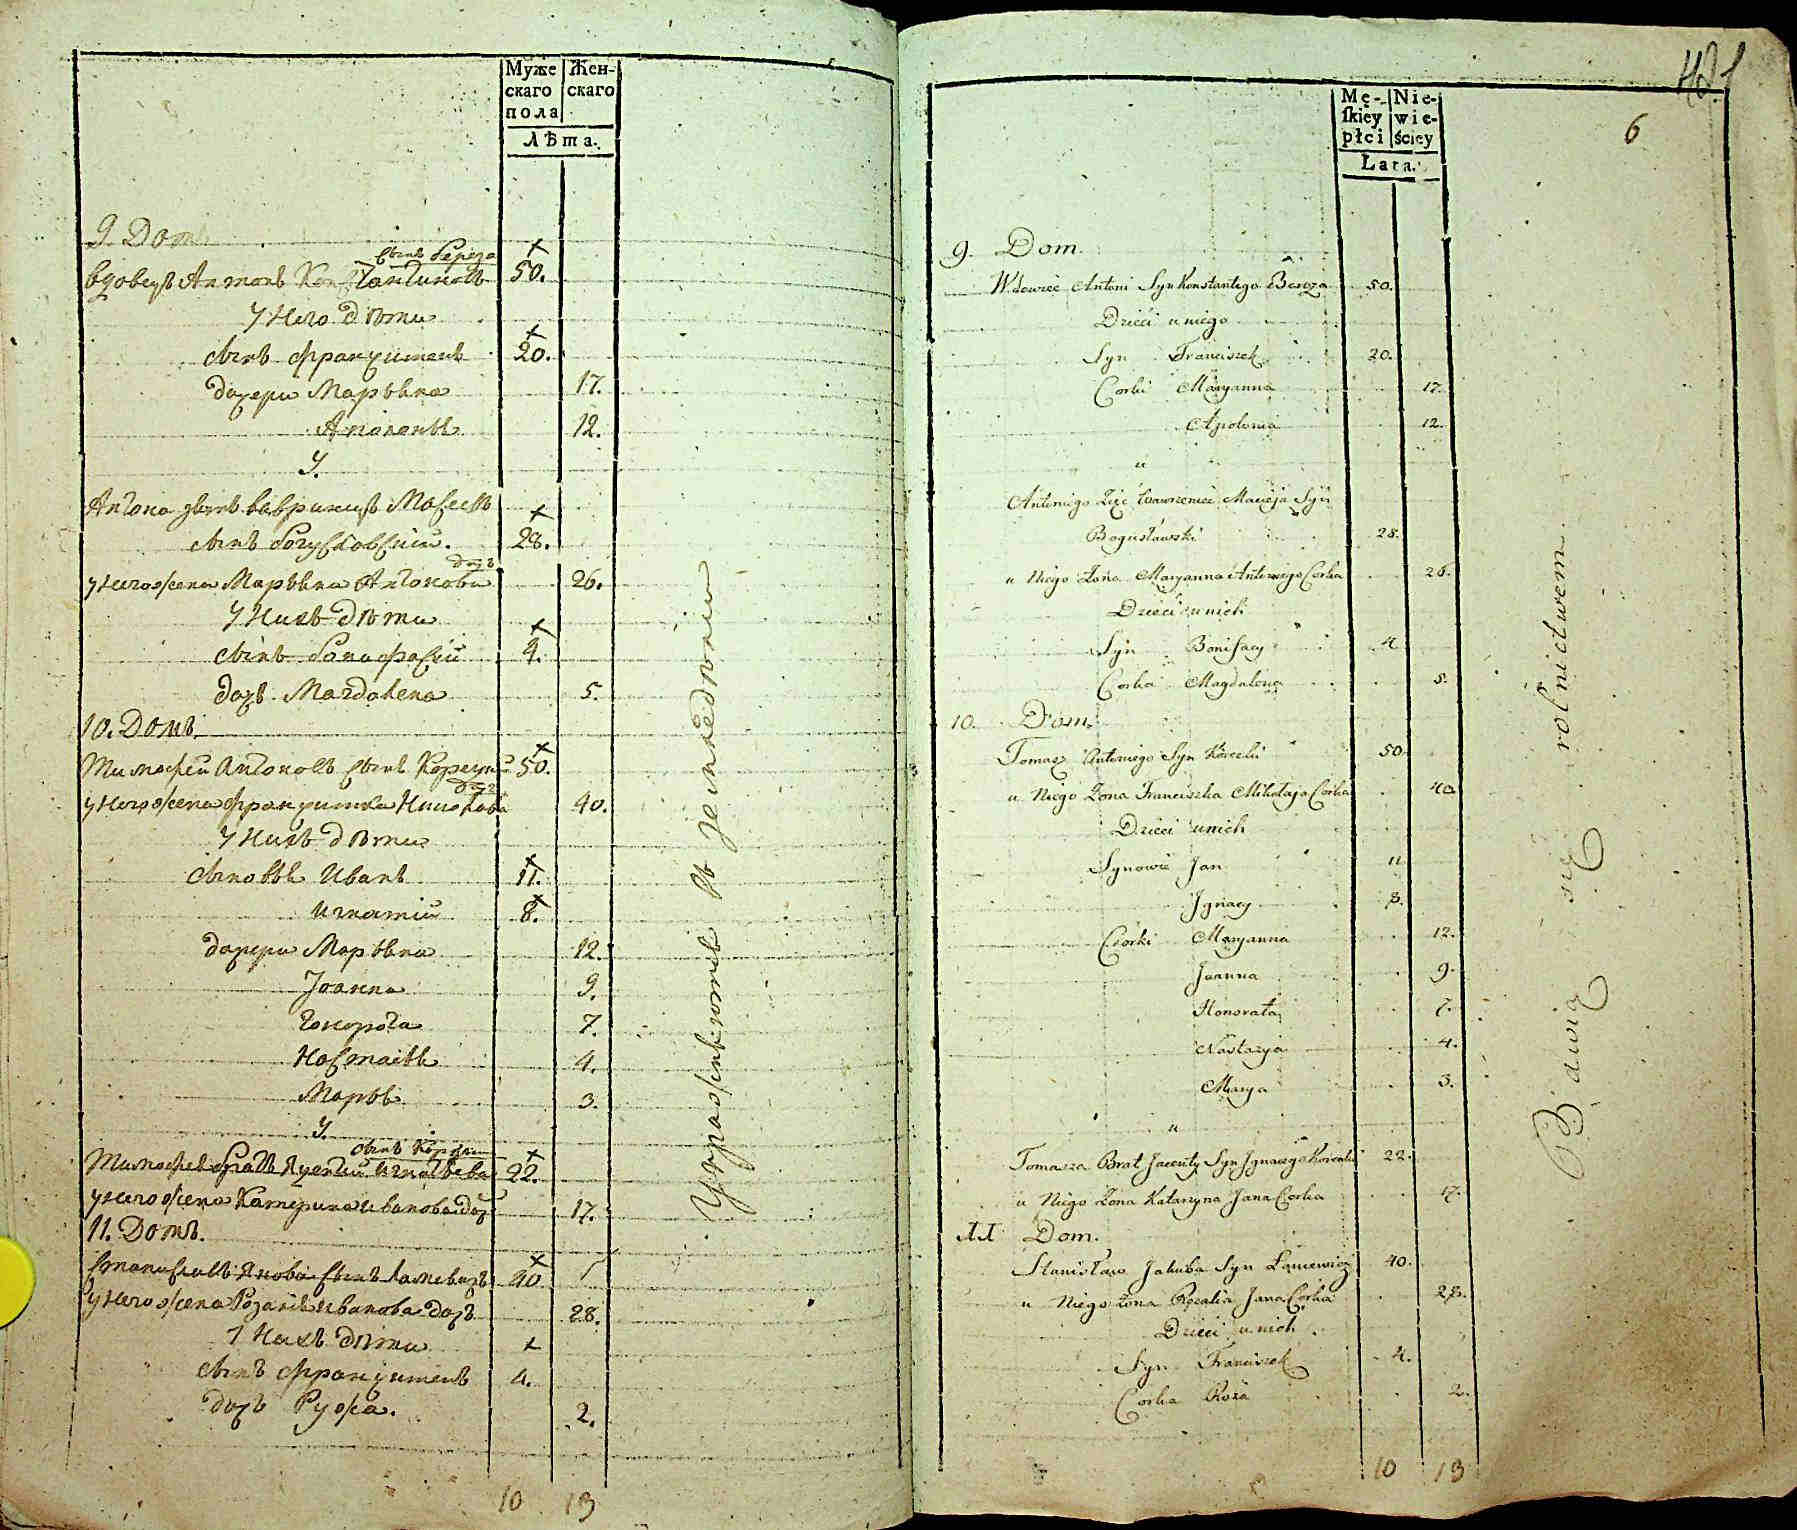 Муже
скаго
пола
Жен-
скаго
Лѣта.
9. Домъ
сынъ Береза
вдовецъ Антонъ Константиновъ 50.
У Него дѣти
сынъ францишекъ 20.
дочери Марьяна 17.
Аполонія 12.
У
Антона зять вавринецъ Мацеевъ
сынъ Богуславскій. 28.
дочь
у Него жена Марьяна Антонова 26.
У Нихъ дѣти
сынъ Бонифацій 4.
дочь Магдалена 5.
10. Домъ.
Тимофей Антоновъ сынъ 50.
дочь
у Него жена францишка 40.
У Нихъ дѣти
сыновья Иванъ 11.
игнатій 8.
дочери Марьяна 12.
Іоанна 9.
гонората 7.
Настасія 4.
Марья 3.
У
сынъ
Тимофея братъ Яцентій игнатьева 22.
у Него жена Катерина иванова дочь 17.
11. Домъ.
Станиславъ Якова сынъ 40
у Него жена Розалія иванова дочь 28.
У Нихъ дѣти
сынъ францишекъ 4.
дочь Ружа. 2.
10 13
Упражняются въ земледѣліи
Mę-
skiey
płci
Nie-
wie-
ściey
Lata.
6
9. Dom.
Wdowiec Antoni Syn Konstantego Bereza 50.
Dzieci u niego
Syn Franciszek 20.
Corki Maryanna 17.
Apolonia 12.
u
Antoniego Zięć Wawrzeniec Macieja Syn
Bogusławski 28.
u Niego Żona Maryanna Antoniego Corka 26.
Dzieci u nich
Syn Bonifacy 4
Corka Magdalena 5.
10. Dom.
Tomasz Antoniego Syn Korecki 50.
u Niego Żona Franciszka Mikołaja Corka 40.
Dzieci u nich
Synowie Jan 11
Jgnacy 8.
Corki Maryanna 12.
Joanna 9.
Honorata 7.
Nastazya 4.
Marya 3.
u
Tomasza Brat Jacenty Syn Jgnacego 22.
u Niego Żona Katarzyna Jana Corka 17.
11 Dom.
Stanisław Jakuba Syn Łaniewicz 40.
u Niego Żona Rozalia Jana Corka 28.
Dzieci u nich
Syn Franciszek 4.
Corka Roża 2.
10 13
Bawią się rolnictwem